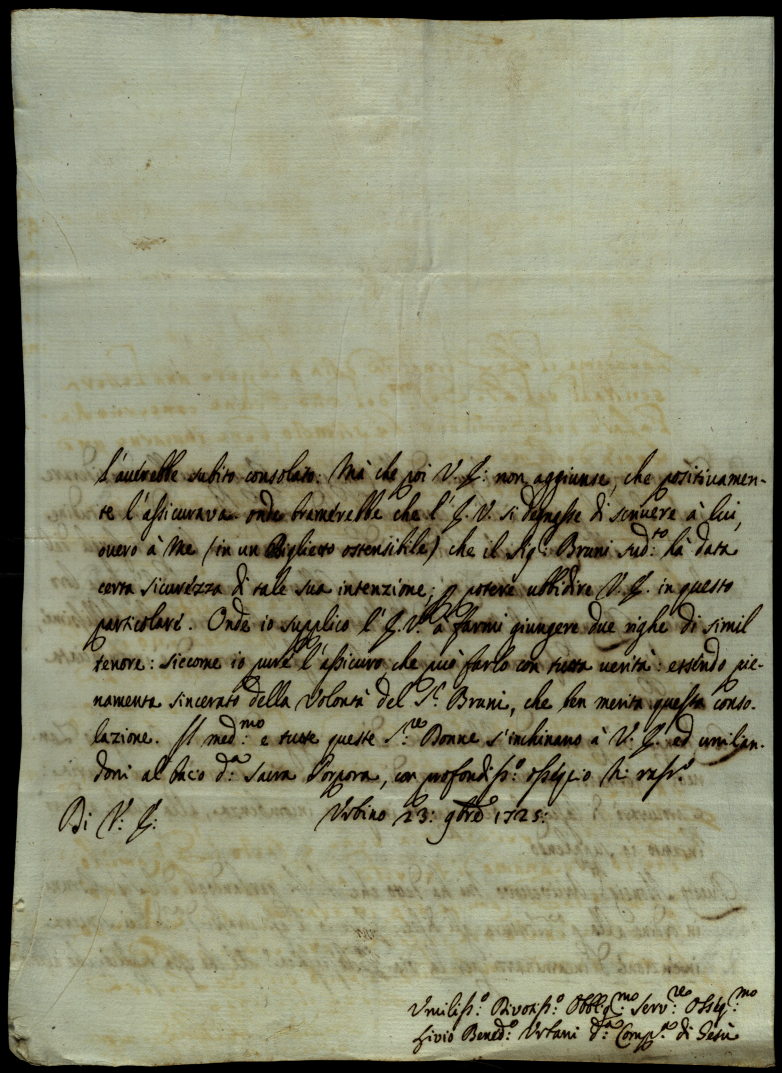 l'averebbe subito consolato: Mà che poi V. E: non aggiunse, che positivamen-
te l'assicurava: onde bramerebbe che l'E. V. si degnasse di scrivere à lui,
overo à Me (in un Biglietto ostensibile) che il Sig.r Bruni sud.to hà data
certa sicurezza di tale sua intenzione, p potere ubbidire V. E. in questo
particolare. Onde io supplico l'E. V. à farmi giungere due righe di simil
tenore: siccome io pure l'assicuro, che può farlo con tutta verità: essendo pie-
namente sincerato della Volontà del S.r Bruni, che ben merita questa conso-
lazione. Il med:mo e tutte queste S.re Donne s'inchinano à V. E. ed umilian-
domi al bacio d.a Sacra Porpora, con profondiss.o ossequio mi rass.o
Di V: E: Urbino 23: 9bre 1725:
Umiliss.o Divotiss.o Obblig:mo Serv:re Osseq:mo
Livio Bened.o Urbani d.a Comp.a di Gesù